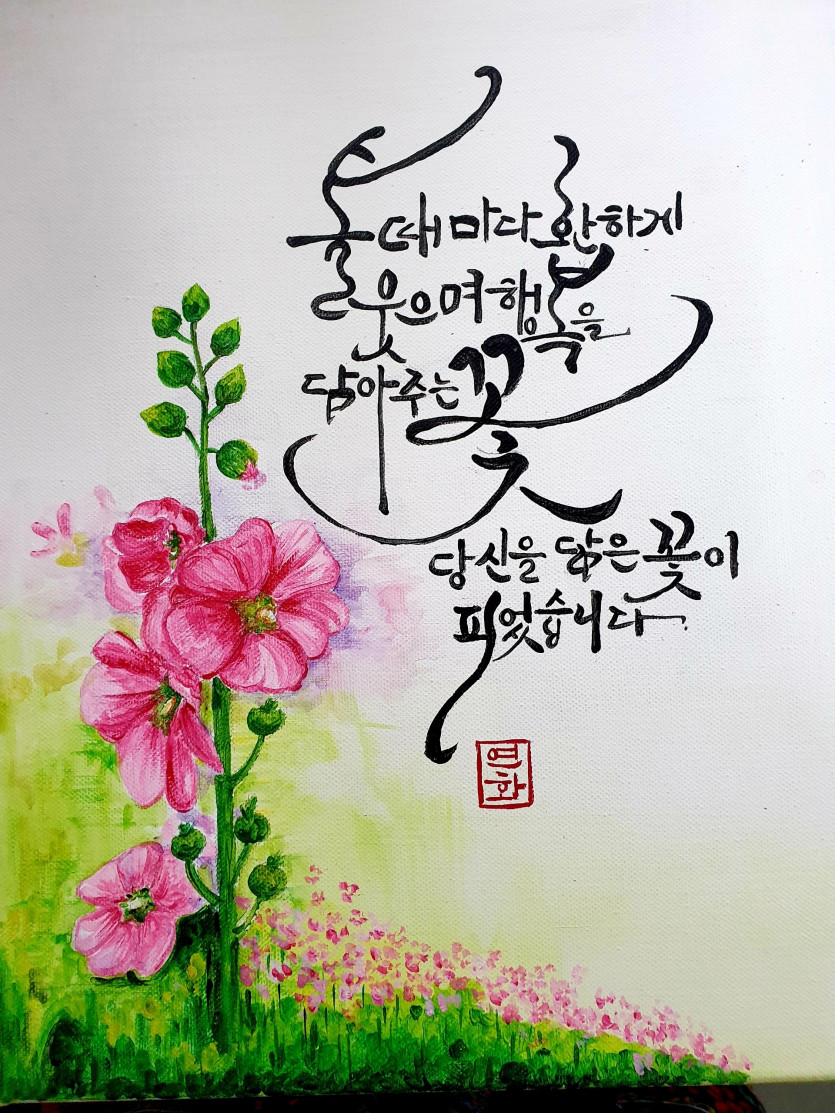 볼때마다 환하게
웃으며 행복을
담아주는 꽃
당신을 닮은 꽃이
피었습니다
연화